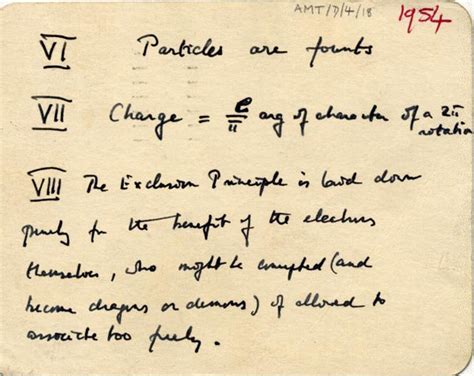 AMT/D/4/18
1954
VI Particles are founts
VII Charge = e/π arg of character of a 2π
rotation
VIII The Exclusion Principle is laid down
purely for the benefit of the electrons
themselves, who might be corrupted (and
become dragons or demons) if allowed to
associate too freely.